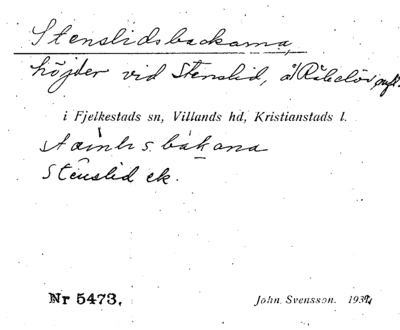 Stenslidsbackarna,
höjder vid Stenslid, å Råbelöv
i Fjelkestads sn, Villands hd, Kristianstads l.
Stenslid ek.
Nr 5473. John. Svensson. 1934